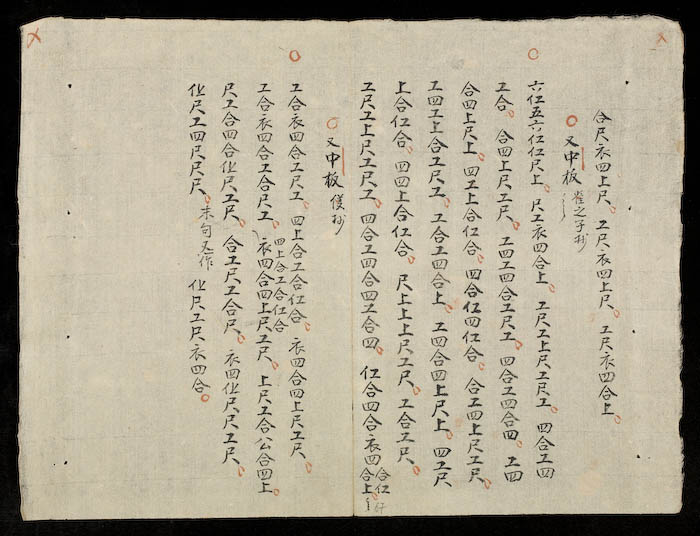 合尺衣四上尺。工尺衣四上尺。工尺衣四合上。
又中板 崔之子抄
六仜五六仜仜尺上。尺工衣四合上。工尺工上尺工尺工。四合工四
工合。合四上尺工尺。工四工四合工尺工。四合工四合四。工四
合四上尺上。四工上合仜合。四合仜四仜合。合工四上尺工尺。
工四工上合工尺工。工合工四合上。工四合四上尺上。四工尺
上合仜合。四四上合仜合。尺上上上尺工尺。工合工尺。
工尺工上尺工尺工。四合工四合四工合四。仜合四合衣四合上。
合仜
又中板
工合衣四合工尺工。四上合工合仜合。衣四合四上尺工尺
四上合工合仜合
工合衣四合工合尺工。衣四合四上尺工尺。上尺工合公合四上。
尺工合四合化尺工尺。合工尺工合尺。衣四化尺尺工尺。
化尺工四尺尺尺。末句又作 化尺工尺衣四合。